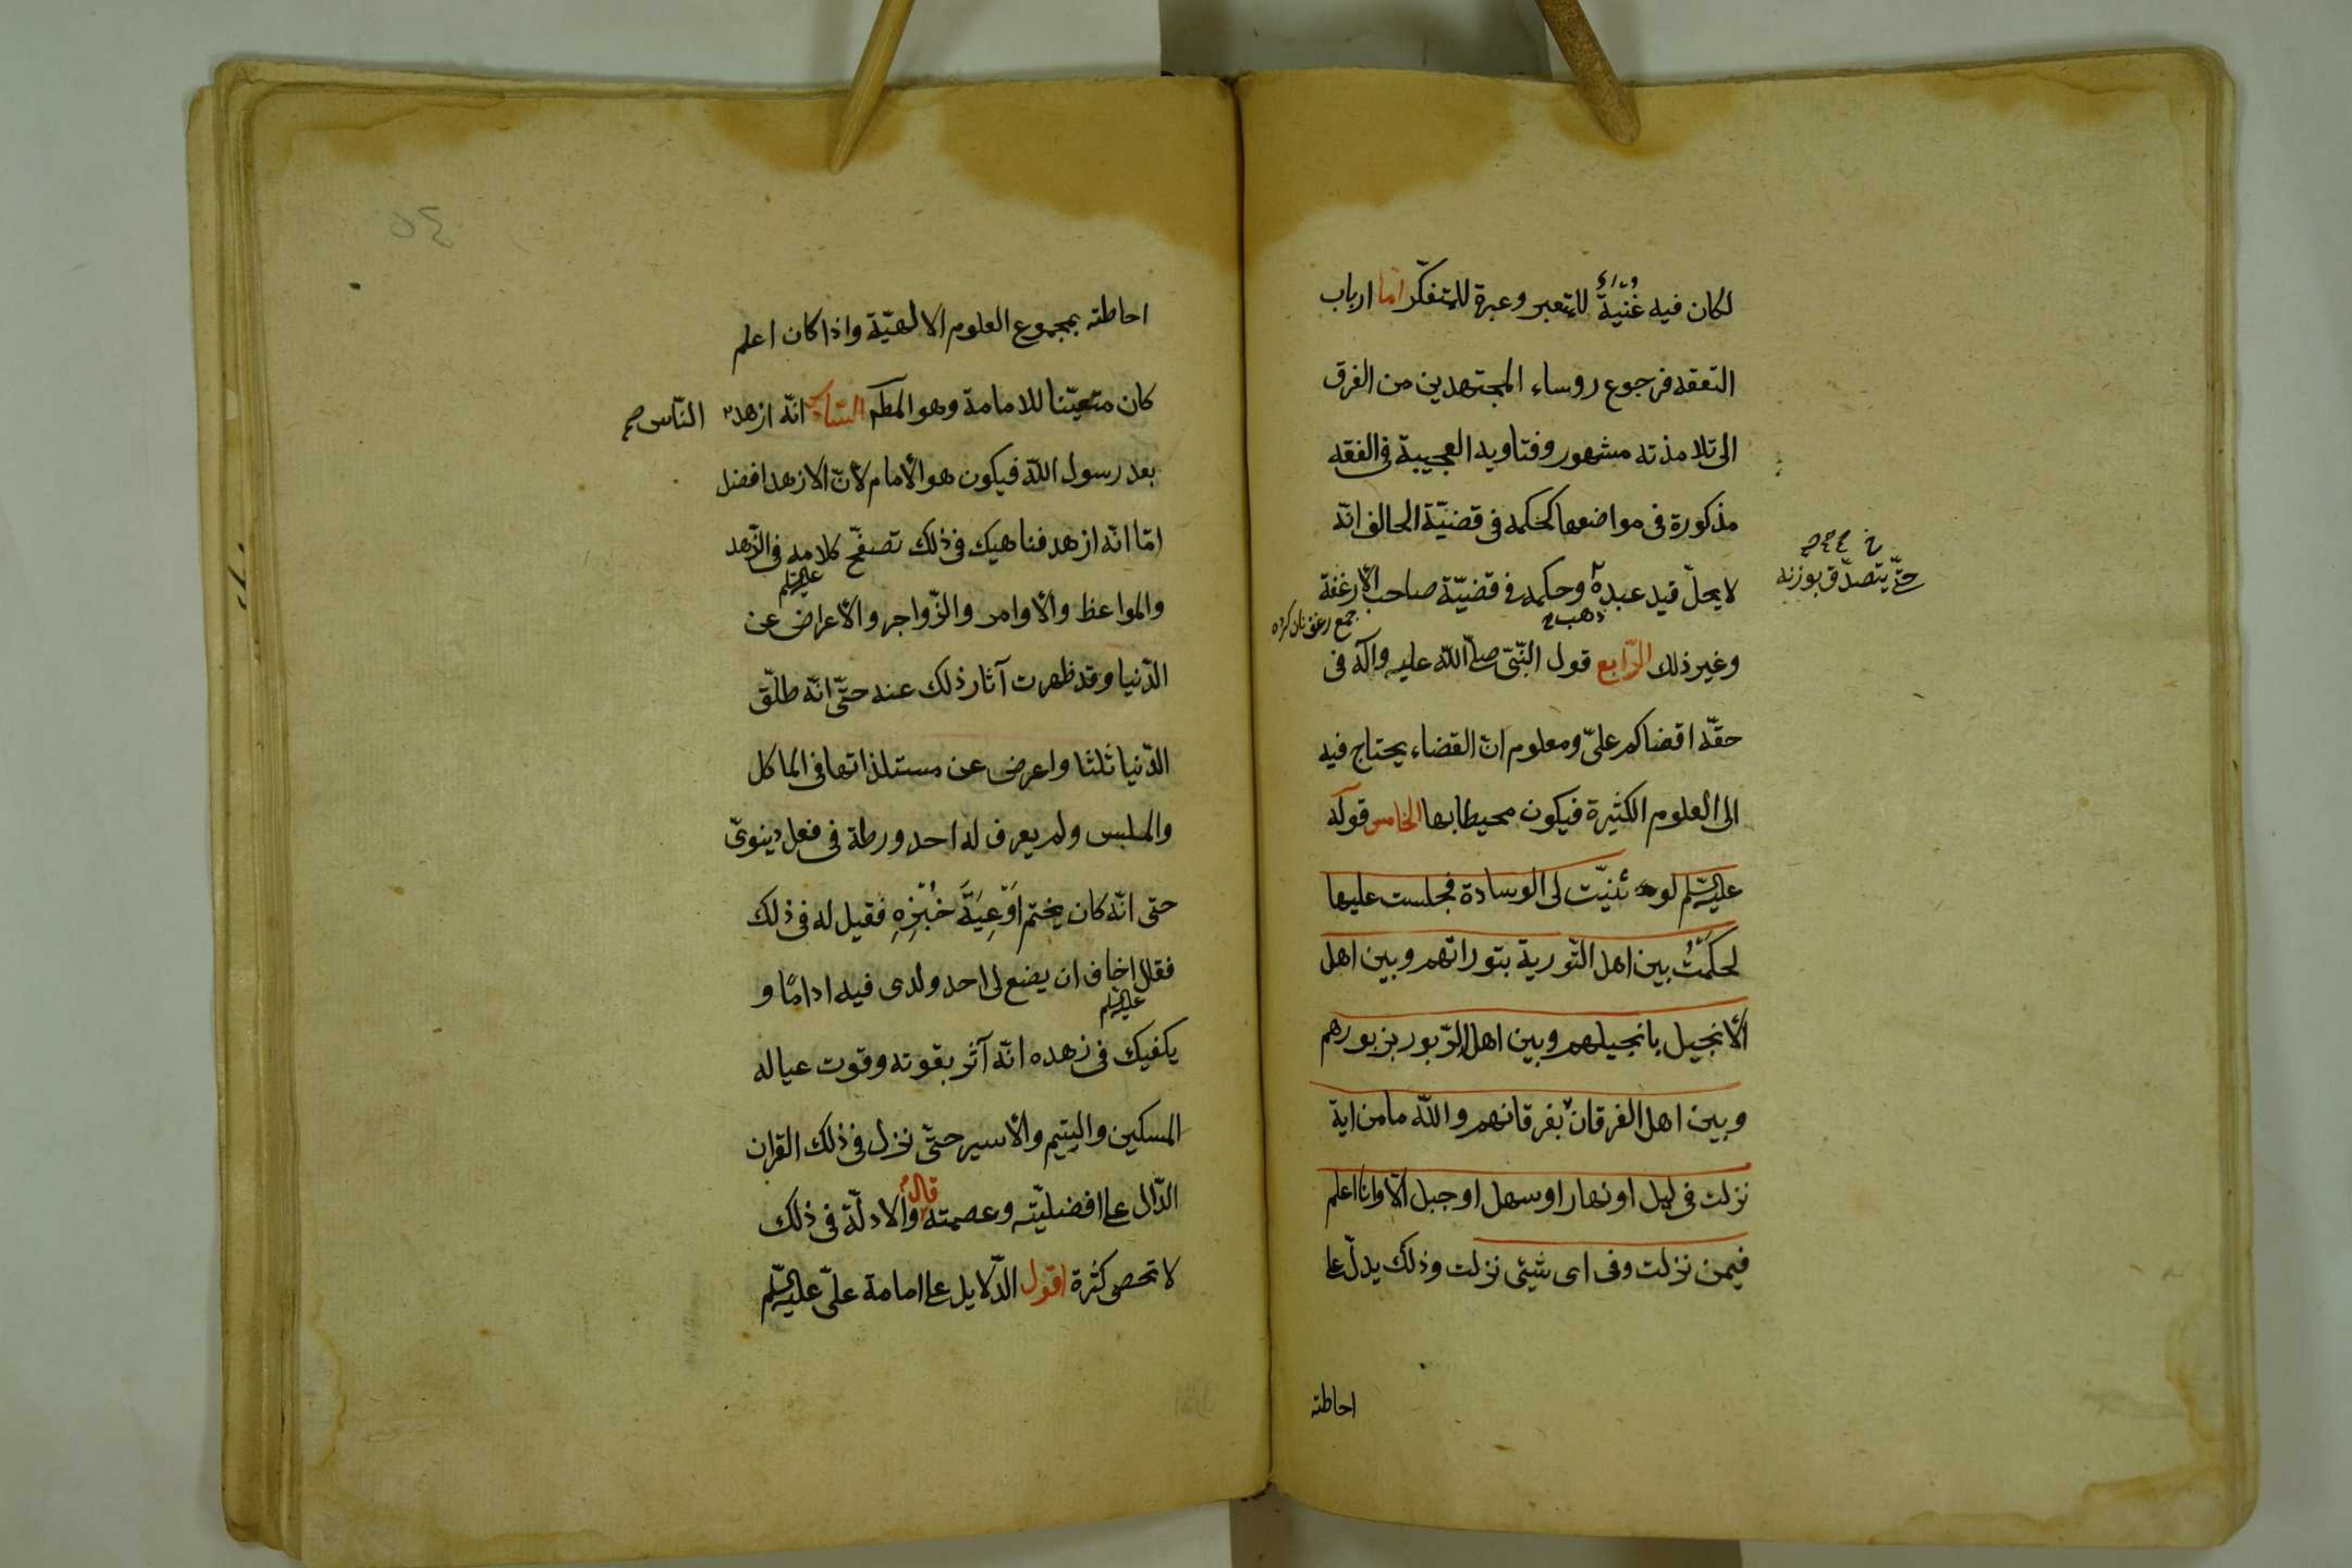 لكان فيه غُنْيَةٌ للمتعبر وعبرة للمتفكّر امّا ارباب
التفقه فرجوع روساء المجتهدين من الفرق
الى تلامذته مشهور وفتاويه العجيبة فى الفقه
مذكورة فى مواضعها كحكمه فى قضيّة الحالف انّه
لا يحلّ قيد عبده وحكمه فى قضيّة صاحب الأرغفة
حتّى يتصدّق بوزنه
ذهب
جمع رغيف نان كرده
وغير ذلك الرّابع قول النّبىّ صلّى اللّه عليه وآله فى
حقّه اقضاكم علىّ ومعلوم انّ القضاء يحتاج فيه
الى العلوم الكثيرة فيكون محيطا بها الخامس قوله
عليه السّلم لو ثنيّت لى الوسادة فجلست عليها
لحكمْتُ بين اهل التّورية بتوراتهم وبين اهل
الأنجيل بانجيلهم وبين اهل الزّبور بزبورهم
وبين اهل الفرقان بفرقانهم واللّه ما من اية
نزلت فى ليل او نهار او سهل او جبل الّا وانا اعلم
فيمن نزلت وفى اى شيئى نزلت وذلك يدلّ على
احاطته
احاطته بمجموع العلوم الالهيّة واذا كان اعلم
كان متعيّنا للامامة وهو المطم السّادس انّه ازهد النّاس صح
بعد رسول اللّه فيكون هو الأمام لأنّ الازهد افضل
امّا انّه ازهد فناهيك فى ذلك تصفّح كلامه فى الزّهد
عليه السّلم
والمواعظ والأوامر والزّواجر والأعراض عن
الدّنيا وقد ظهرت آثار ذلك عنه حتّى انّه طلّق
الدّنيا ثلثا واعرض عن مستلذاتها فى الماكل
والملبس ولم يعرف له احد ورطة فى فعل دينوىّ
حتى انّه كان يختم اَوْعِيَةَ خُبْزِهِ فقيل له فى ذلك
فقال اخاف ان يضع لى احد ولدى فيه ادامًا و
عليه السّلم
يكفيك فى زهده انّه آثر بقوته وقوت عياله
المسكين واليتيم والأسير حتّى نزل فى ذلك القران
الدّال على افضليّته وعصمته قال والادلّة فى ذلك
لا تحصى كثرة اقول الدّلايل على امامة علىّ عليه السّلم